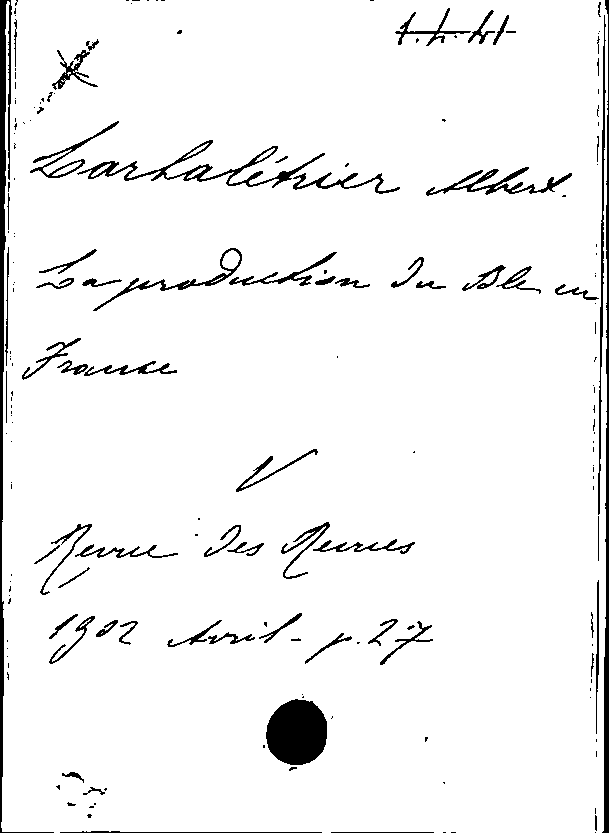 Larbalétrier Albert.
La production du Blé en
France
V
Revue des Revues
1902 Avril - p. 27